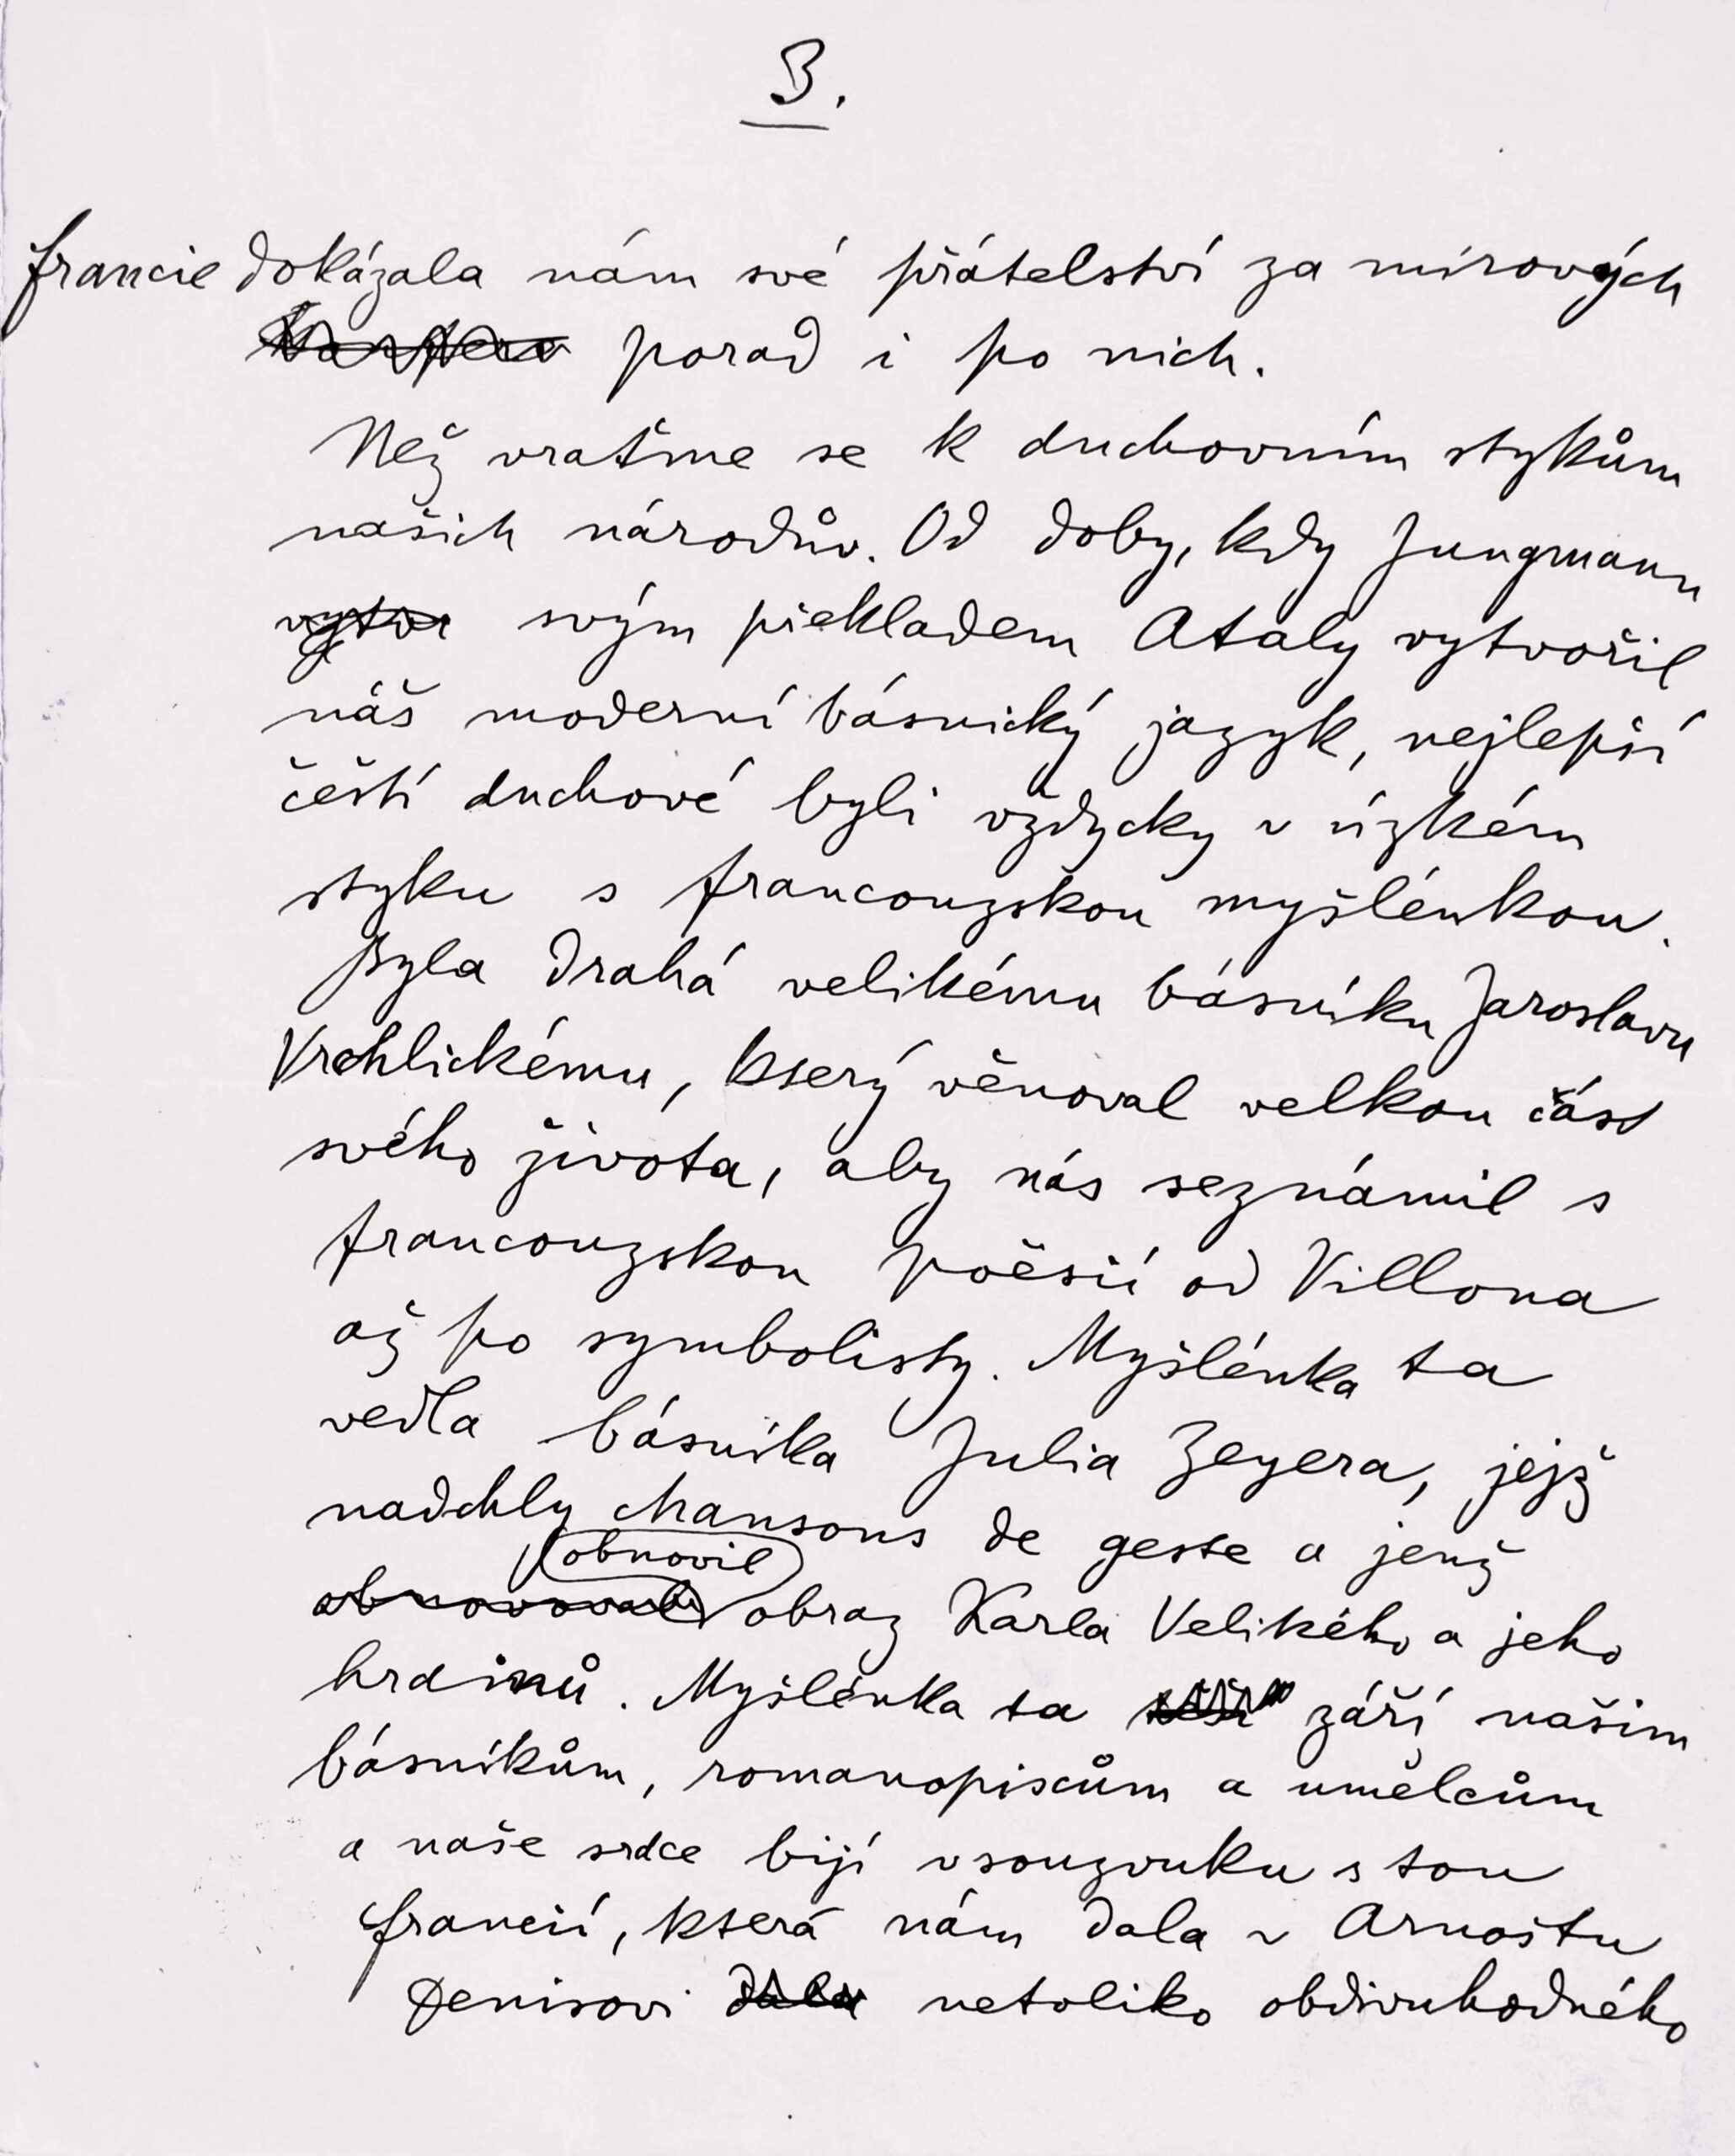 3.
francie dokázala nám své přátelství za mírových
porad i po nich.
Než vraťme se k duchovním stykům
našich národův. Od doby, kdy Jungmann
vytvor svým překladem Ataly vytvořil
náš moderní básnický jazyk, nejlepší
čeští duchové byli vždycky v úzkém
styku s francouzskou myšlénkou.
Byla drahá velikému básníku Jaroslavu
Vrchlickému, který věnoval velkou část
svého života, aby nás seznámil s
francouzskou poësií od Villona
až po symbolisty. Myšlénka ta
vedla básníka Julia Zeyera, jejž
nadchly chansons de geste a jenž
obnovil
obnovoval obraz Karla Velikého a jeho
hrdinů. Myšlénka ta září našim
básníkům, romanopiscům a umělcům
a naše srdce bijí v souzvuku s tou
francií, která nám dala v Arnoštu
Denisovi dala netoliko obdivuhodného